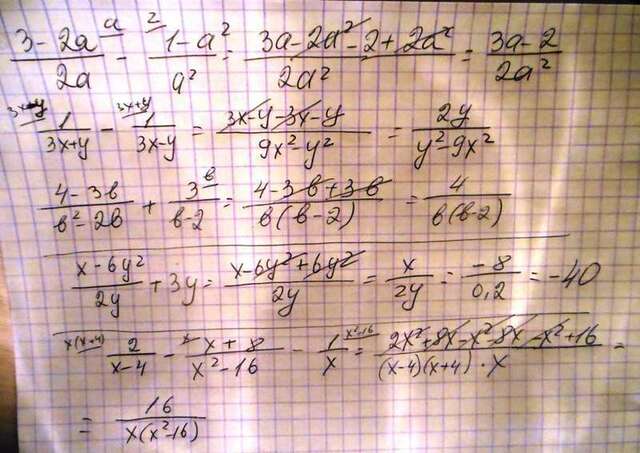 (3-2a)/2a ᵃ - ² (1-a²)/a² = (3a-2a²-2+2a²)/2a² = (3a-2)/2a²
³ˣ⁻ʸ 1/(3x+y) - ³ˣ⁺ʸ 1/(3x-y) = (3x-y-3x-y)/(9x²-y²) = 2y/(y²-9x²)
(4-3в)/(в²-2в) + 3/(в-2) ᵇ = (4-3в+3в)/(в(в-2)) = 4/(в(в-2))
(x-6y²)/2y + 3y = (x-6y²+6y²)/2y = x/2y = -8/0,2 = -40
ˣ⁽ˣ⁺⁴⁾ 2/(x-4) - ˣ (x+8)/(x²-16) - 1/x ˣ²⁻¹⁶ = (2x²+8x-x²-8x-x²+16)/((x-4)(x+4)·x) =
= 16/(x(x²-16))